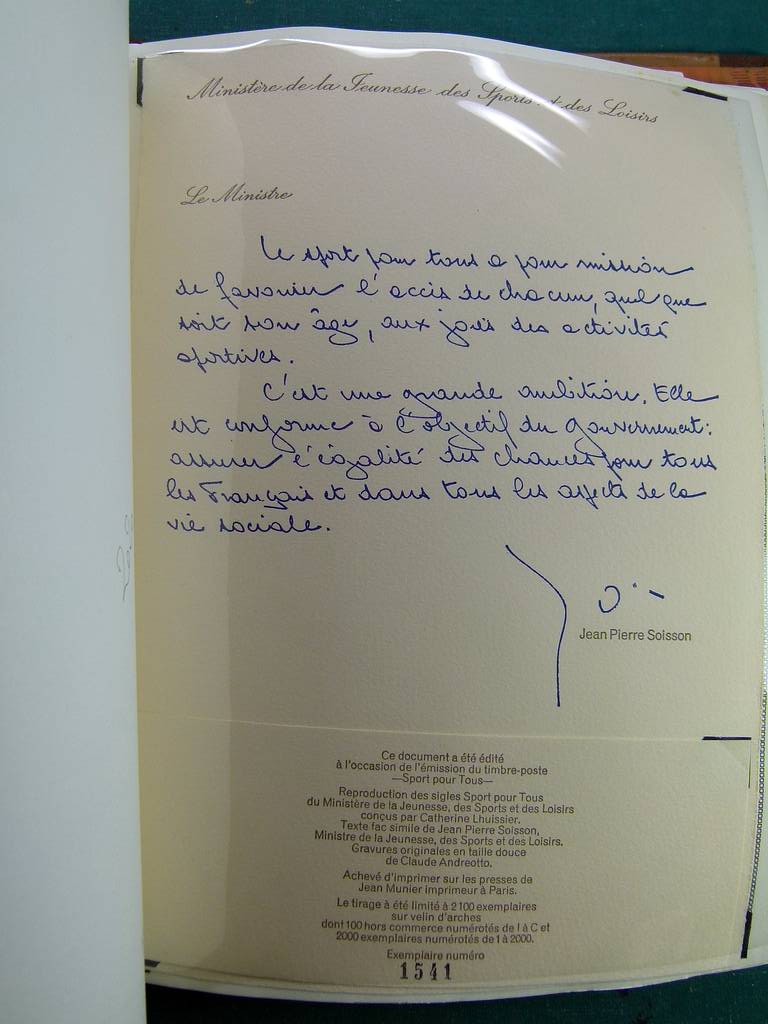 Ministère de la Jeunesse des Sports et des Loisirs
Le Ministre
Le sport pour tous a pour mission
de favoriser l'accès de chacun, quel que
soit son âge, aux joies des activités
sportives.
C'est une grande ambition. Elle
est conforme à l'objectif du gouvernement:
assurer l'égalité des chances pour tous
les Français et dans tous les aspects de la
vie sociale.
Jean Pierre Soisson
Ce document a été édité
à l'occasion de l'émission du timbre-poste
—Sport pour Tous—
Reproduction des sigles Sport pour Tous
du Ministère de la Jeunesse, des Sports et des Loisirs
conçus par Catherine Lhuissier.
Texte fac simile de Jean Pierre Soisson,
Ministre de la Jeunesse, des Sports et des Loisirs.
Gravures originales en taille douce
de Claude Andreotto.
Achevé d'imprimer sur les presses de
Jean Munier imprimeur à Paris.
Le tirage à été limité à 2100 exemplaires
sur velin d'arches
dont 100 hors commerce numérotés de I à C et
2000 exemplaires numérotés de 1 à 2000.
Exemplaire numéro
1541